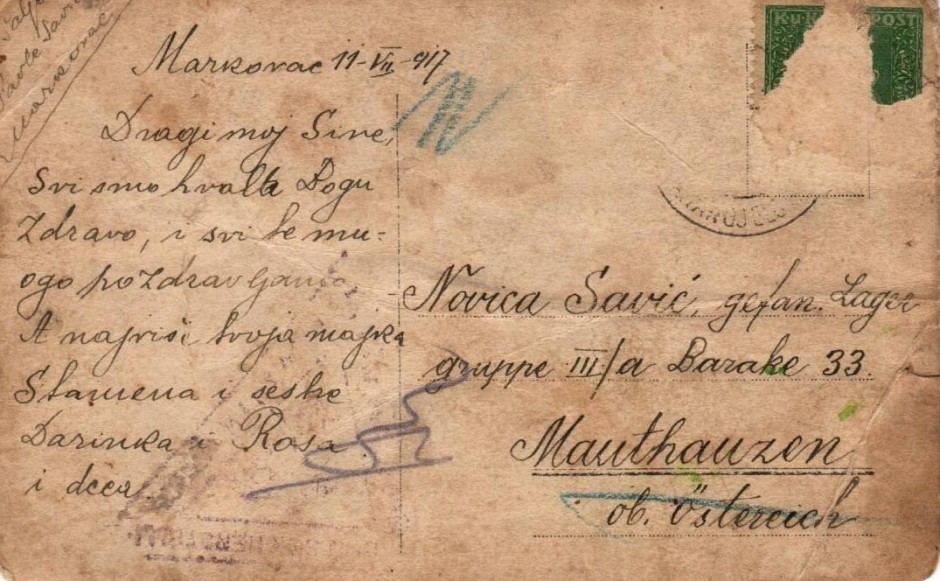 Pavle
Markovac
Markovac 11-VII-917
Dragi moj Sine,
Svi smo hvala Bogu
Zdravo, i svi te mn-
ogo pozdravljamo
A najviše tvoja majka
Stamena i sestre
Darinka i Rosa
i deca
K.u.K. POST
Novica Savić, gefan. Lager
gruppe III/a Barake 33.
Mauthauzen
ob. Östereich